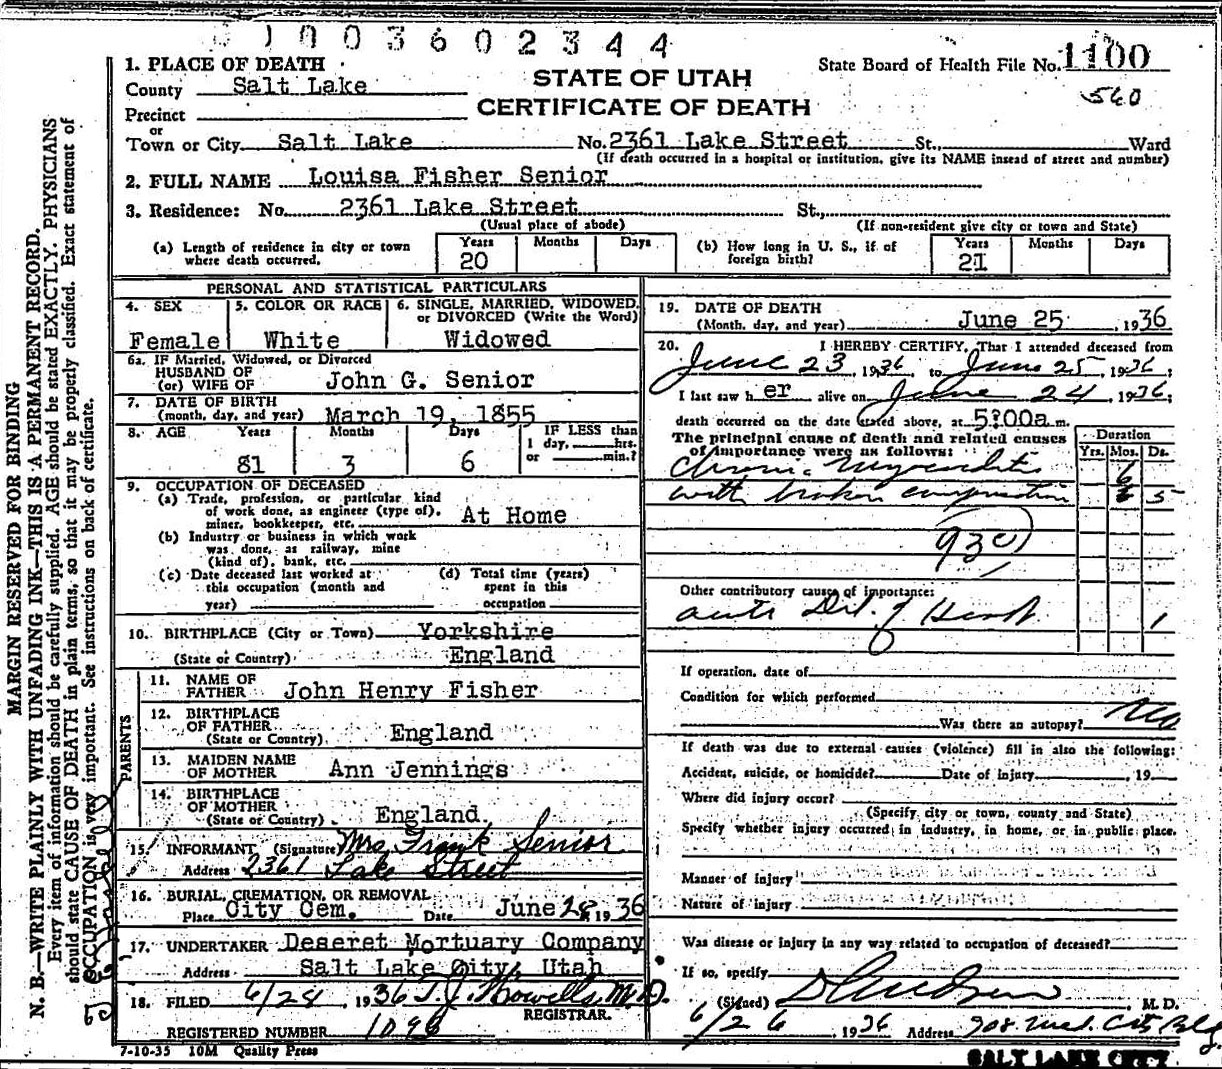 1003602344
1. PLACE OF DEATH
County Salt Lake
Precinct
or
Town or City Salt Lake No. 2361 Lake Street St., Ward
(If death occurred in a hospital or institution, give its NAME insead of street and number)
STATE OF UTAH
CERTIFICATE OF DEATH
State Board of Health File No. 1100
560
2. FULL NAME Louisa Fisher Senior
3. Residence: No. 2361 Lake Street St.,
(Usual place of abode) (If non-resident give city or town and State)
(a) Length of residence in city or town where death occurred. Years 20 Months Days
(b) How long in U. S., if of foreign birth? Years 21 Months Days
PERSONAL AND STATISTICAL PARTICULARS
4. SEX Female
5. COLOR OR RACE White
6. SINGLE, MARRIED, WIDOWED, or DIVORCED (Write the Word) Widowed
6a. IF Married, Widowed, or Divorced
HUSBAND OF
(or) WIFE OF John G. Senior
7. DATE OF BIRTH
(month, day, and year) March 19, 1855
8. AGE Years 81 Months 3 Days 6
IF LESS than
1 day, hrs.
or min.?
9. OCCUPATION OF DECEASED
(a) Trade, profession, or particular kind
of work done, as engineer (type of),
miner, bookkeeper, etc. At Home
(b) Industry or business in which work
was done, as railway, mine
(kind of), bank, etc.
(c) Date deceased last worked at
this occupation (month and
year)
(d) Total time (years)
spent in this
occupation
10. BIRTHPLACE (City or Town) Yorkshire
(State or Country) England
PARENTS
11. NAME OF
FATHER John Henry Fisher
12. BIRTHPLACE
OF FATHER
(State or Country) England
13. MAIDEN NAME
OF MOTHER Ann Jennings
14. BIRTHPLACE
OF MOTHER
(State or Country) England.
15. INFORMANT (Signature) Mrs Frank Senior
Address 2361 Lake Street
16. BURIAL, CREMATION, OR REMOVAL
Place City Cem. Date June 28, 1936
17. UNDERTAKER Deseret Mortuary Company
Address Salt Lake City, Utah
18. FILED 1936 T. J. Howells, M.D.
REGISTRAR.
REGISTERED NUMBER
7-10-35 10M Quality Press
19. DATE OF DEATH
(Month, day, and year) June 25, 1936
20. I HEREBY CERTIFY, That I attended deceased from
June 23, 1936, to June 25, 1936;
I last saw her alive on June 24, 1936;
death occurred on the date stated above, at 5:00a m.
The principal cause of death and related causes
of importance were as follows:
Duration
Yrs. Mos. Ds.
Chronic Myocarditis 6
with broken compensation 5
93c
Other contributory causes of importance:
acute Dil. of Heart 1
If operation, date of
Condition for which performed
Was there an autopsy? No
If death was due to external causes (violence) fill in also the following:
Accident, suicide, or homicide? Date of Injury , 19
Where did injury occur?
(Specify city or town, county and State)
Specify whether injury occurred in industry, in home, or in public place.
Manner of injury
Nature of injury
Was disease or injury in any way related to occupation of deceased?
If so, specify
(Signed) M. D.
6/26 1936 Address 908 Med. Arts Bldg.
SALT LAKE CITY
MARGIN RESERVED FOR BINDING
N. B.—WRITE PLAINLY WITH UNFADING INK—THIS IS A PERMANENT RECORD.
Every item of information should be carefully supplied. AGE should be stated EXACTLY. PHYSICIANS
should state CAUSE OF DEATH in plain terms, so that it may be properly classified. Exact statement of
OCCUPATION is very important. See instructions on back of certificate.